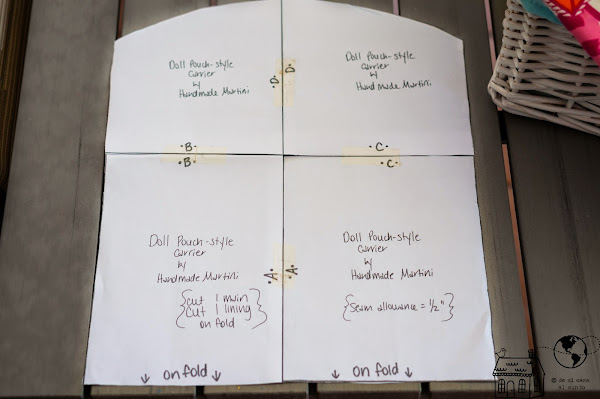 Doll Pouch-style
Carrier
w/
Handmade Martini
•D•
Doll Pouch-style
Carrier
w/
Handmade Martini
•D•
•B•
•B•
•C•
•C•
Doll Pouch-style
Carrier
w/
Handmade Martini
{cut 1 main
cut 1 lining
on fold}
•A•
↓ on fold ↓
Doll Pouch-style
Carrier
w/
Handmade Martini
{seam allowance = 1/2"}
•A•
↓ on fold ↓
© de mi casa
al mundo